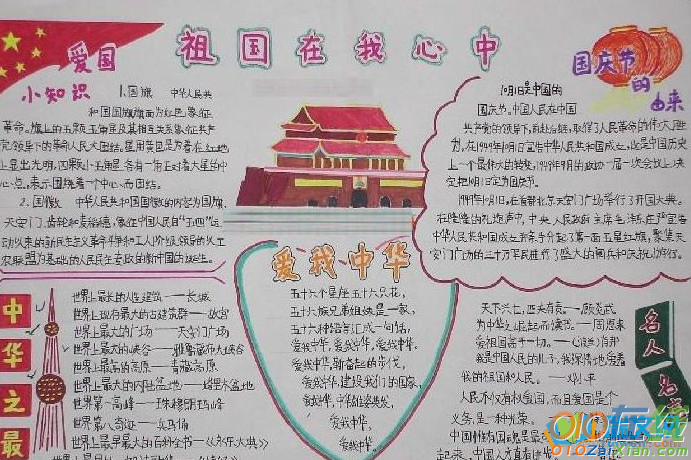 祖国在我心中
爱国
小知识
1.国旗 中华人民共
和国国旗旗面为红色,象征
革命。旗上的五颗五角星及其相互关系象征共产
党领导下的革命人民大团结。星用黄色是为着在红地
上显出光明,四颗小五角星各有一角正对着大星的中
心点,表示围绕着一个中心而团结。
2.国徽 中华人民共和国国徽的内容为国旗、
天安门、齿轮和麦稻穗,象征中国人民自“五四”运
动以来的新民主主义革命斗争和工人阶级领导的以工
农联盟为基础的人民民主专政的新中国的诞生。
国庆节
的
由来
10月1日是中国的
国庆节。中国人民在中国
共产党的领导下,前赴后继,取得了人民革命的伟大胜
利,在1949年10月1日宣告中华人民共和国成立,这是中国历史
上一个最伟大的转变,1949年9月的政协一届一次会议上决
定把10月1日定为国庆节。
1949年10月1日,在首都北京天安门广场举行了开国大典。
在隆隆的礼炮声中,中央人民政府主席毛泽东庄严宣告
中华人民共和国成立并亲手升起了第一面五星红旗。聚集天
安门广场的三十万军民进行了盛大的阅兵和庆祝游行。
中华之最
世界上最长的人造建筑——长城
世界上现存最大的古建筑群——故宫
世界上最大的广场——天安门广场
世界上最大的峡谷——雅鲁藏布大峡谷
世界上最高的高原——青藏高原
世界上最大的内陆盆地——塔里木盆地
世界第一高峰——珠穆朗玛峰
世界第八奇迹——兵马俑
世界上最早最大的百科全书——《永乐大典》
爱我中华
五十六个星座五十六只花,
五十六族兄弟姐妹是一家,
五十六种语言汇成一句话,
爱我中华,爱我中华,爱我中华。
爱我中华,健奋起的步伐,
爱我中华,建设我们的国家,
爱我中华,中华雄姿英发,
爱我中华,
爱我中华,
爱我中华。
名人
名言
天下兴亡,匹夫有责。——顾炎武
为中华之崛起而读书。——周恩来
爱祖国高于一切。——
我是中国人民的儿子,我深情地爱着
我的祖国和人民。——邓小平
人民不仅有权爱国,而且爱国是个
义务,是一种光荣。
010在线
010ZaiXian.com